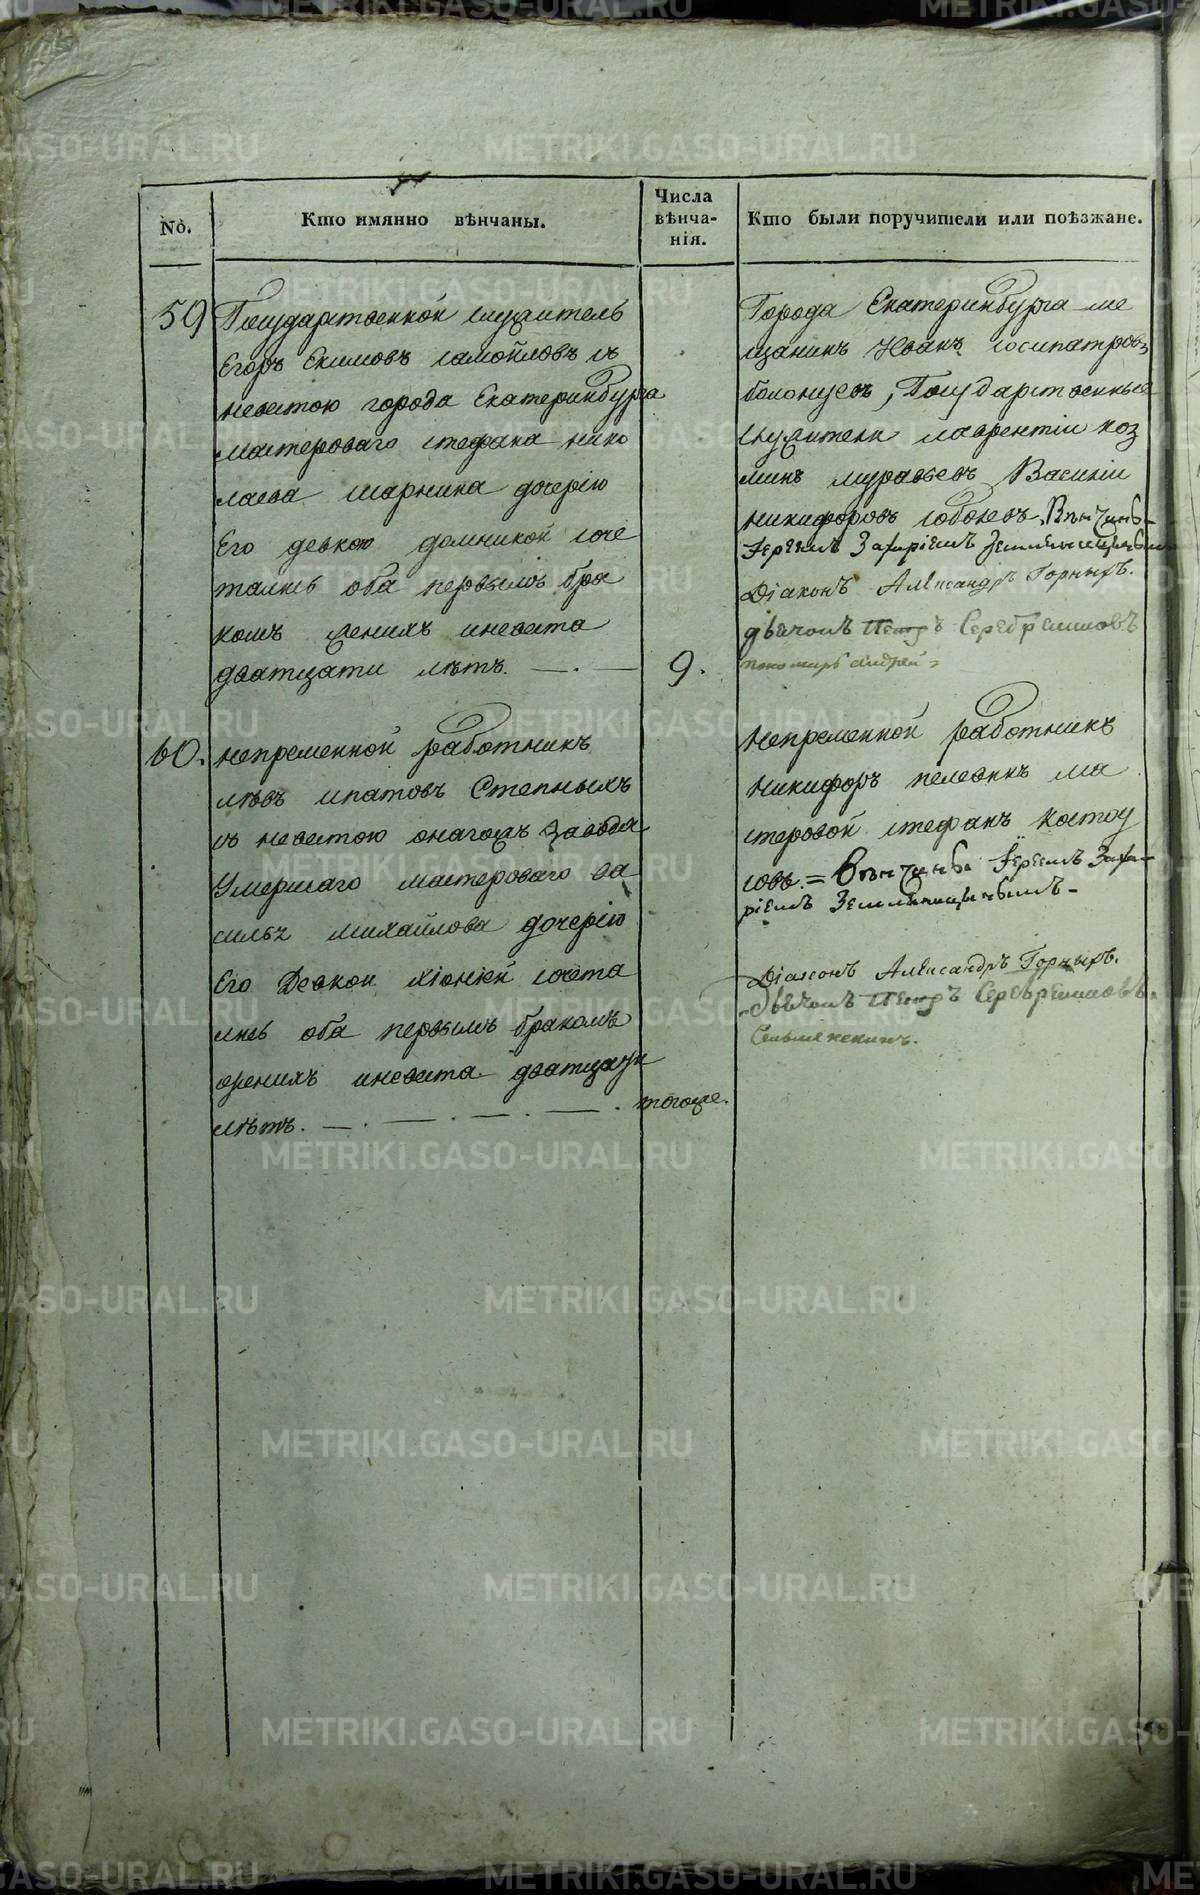 No.
Кто имянно вѣнчаны.
Числа
вѣнча-
нія.
Кто были поручители или поѣзжане.
59
Государственной служитель
Егоръ Екимовъ самойловъ съ
невестою города Екатеринбурга
мастероваго стефана нико
лаева шарника дочерію
Его девкою домникой соче
тались оба первымъ бра
комъ жених иневеста
дватцати лѣтъ.
9.
Города Екатеринбурга ме
щанинъ Иванъ
Государственные
служители лаврентіи коз
минъ муравьевъ Василіи
никифоровъ Вѣнчаны
Іереемъ Захаріемъ
Діаконъ Александръ Горныхъ.
дьячокъ Петръ Серебренниковъ
пономарь андрей
60.
непременной работникъ
левъ ипатовъ Степныхъ
съ невестою онагожъ завода
Умершаго мастероваго ва
силья михайлова дочерію
Его Девкой хіонией сочета
лись оба первымъ бракомъ
женихъ иневеста дватцати
лѣтъ.
тогоже.
непременной работникъ
никифоръ ма
стеровой стефанъ костоу
совъ. = Вѣнчаны Іереемъ Заха-
ріемъ
Діаконъ Александръ Горныхъ.
Дьячокъ Петръ Серебренниковъ.
METRIKI.GASO-URAL.RU